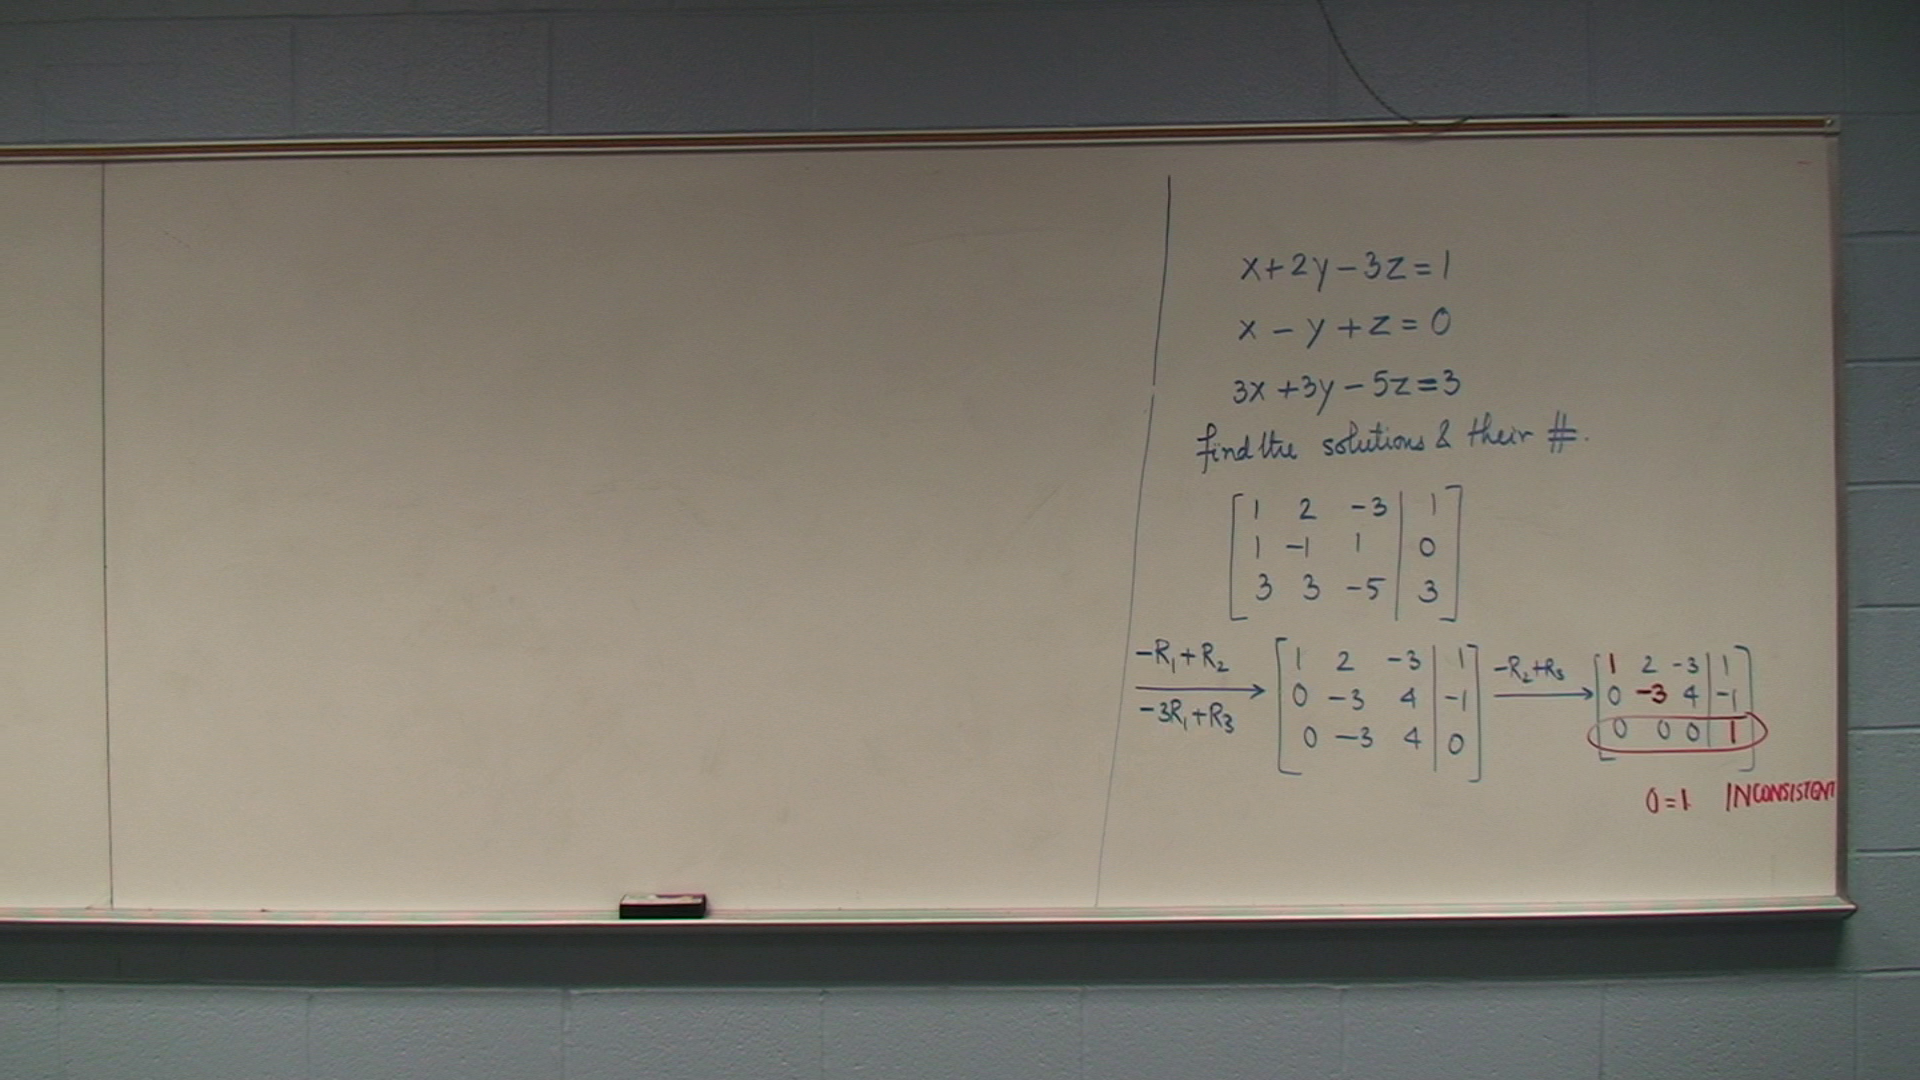 x+2y-3z=1
x-y+z=0
3x+3y-5z=3
find the solutions & their #.
1 2 -3 | 1
1 -1 1 | 0
3 3 -5 | 3
-R₁+R₂
-3R₁+R₃
1 2 -3 | 1
0 -3 4 | -1
0 -3 4 | 0
-R₂+R₃
1 2 -3 | 1
0 -3 4 | -1
0 0 0 | 1
0=1. INCONSISTENT